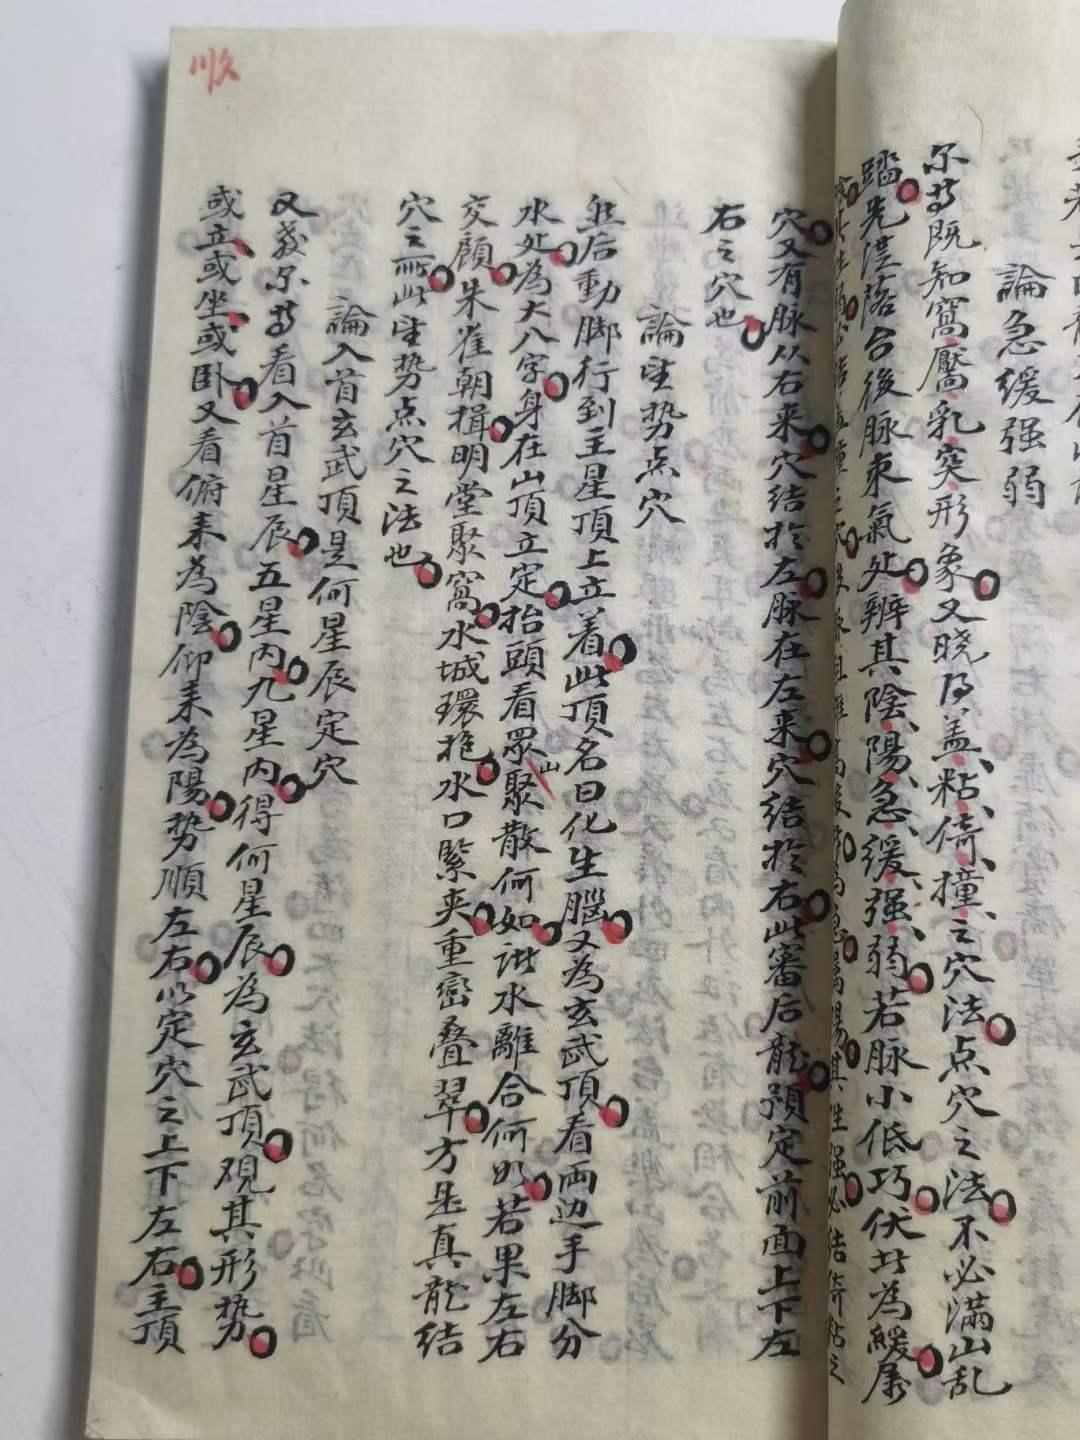 論急緩强弱
尔等既知窩靥乳突形象又晓得盖粘倚撞之穴法点穴之法不必滿山乱
踏先從落台後脉束氣处辨其陰陽急緩强弱若脉小低巧伏此為緩屬
穴又有脉从右来穴结扵左脉在左来穴结扵右此審后龍預定前面上下左
右之穴也
論坐势点穴
然后動脚行到主星頂上立着此頂名曰化生腦又為玄武頂看両边手脚分
水处為大八字身在山頂立定抬頭看眾山聚散何如眾水離合何如若果左右
交顧朱雀朝揖明堂聚窩水城環抱水口緊夹重巒叠翠方是真龍结
穴之所此坐势点穴之法也
論入首玄武頂是何星辰定穴
又教尔等看入首星辰五星内九星内得何星辰為玄武頂观其形势
或立或坐或卧又看俯来為陰仰来為陽势順左右以定穴之上下左右主頂
順